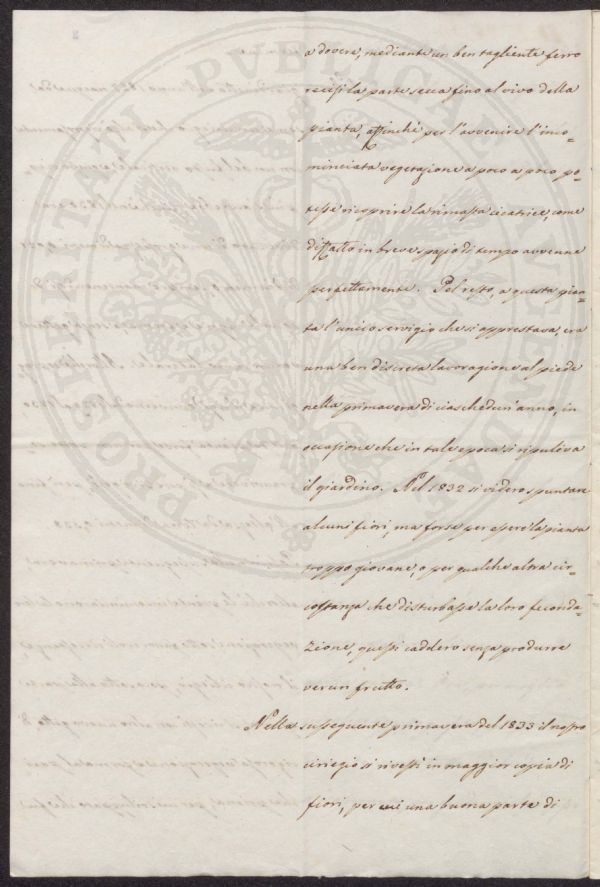 a dovere, mediante un ben tagliente ferro
recisi la parte secca fino al vivo della
pianta, affinchè per l'avvenire l'inco=
minciata vegetazione a poco a poco po=
tesse ricoprire la rimasta cicatrice, come
diffatto in breve spazio di tempo avvenne
perfettamente. Pel resto, a questa pian=
ta l'unico servigio che si apprestava, era
una ben discreta lavorazione al piede
nella primavera di ciaschedun'anno, in
occasione che in tale epoca si ripuliva
il giardino. Nel 1832 si videro spuntare
alcuni fiori, ma forse per essere la pianta
troppo giovane, o per qualche altra cir=
costanza che disturbasse la loro feconda=
zione, questi caddero senza produrre
verun frutto.
Nella susseguente primavera del 1833 il nostro
ciriegio si rivestì in maggior copia di
fiori, per cui una buona parte di
PROSPERITATI PUBLICAE AUGENDAE